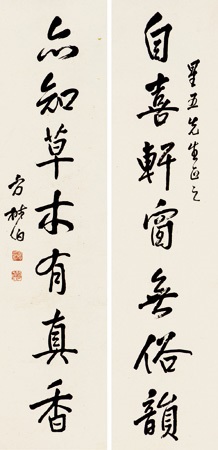 星五先生正之
自喜軒窗無俗韻
亦知草木有真香